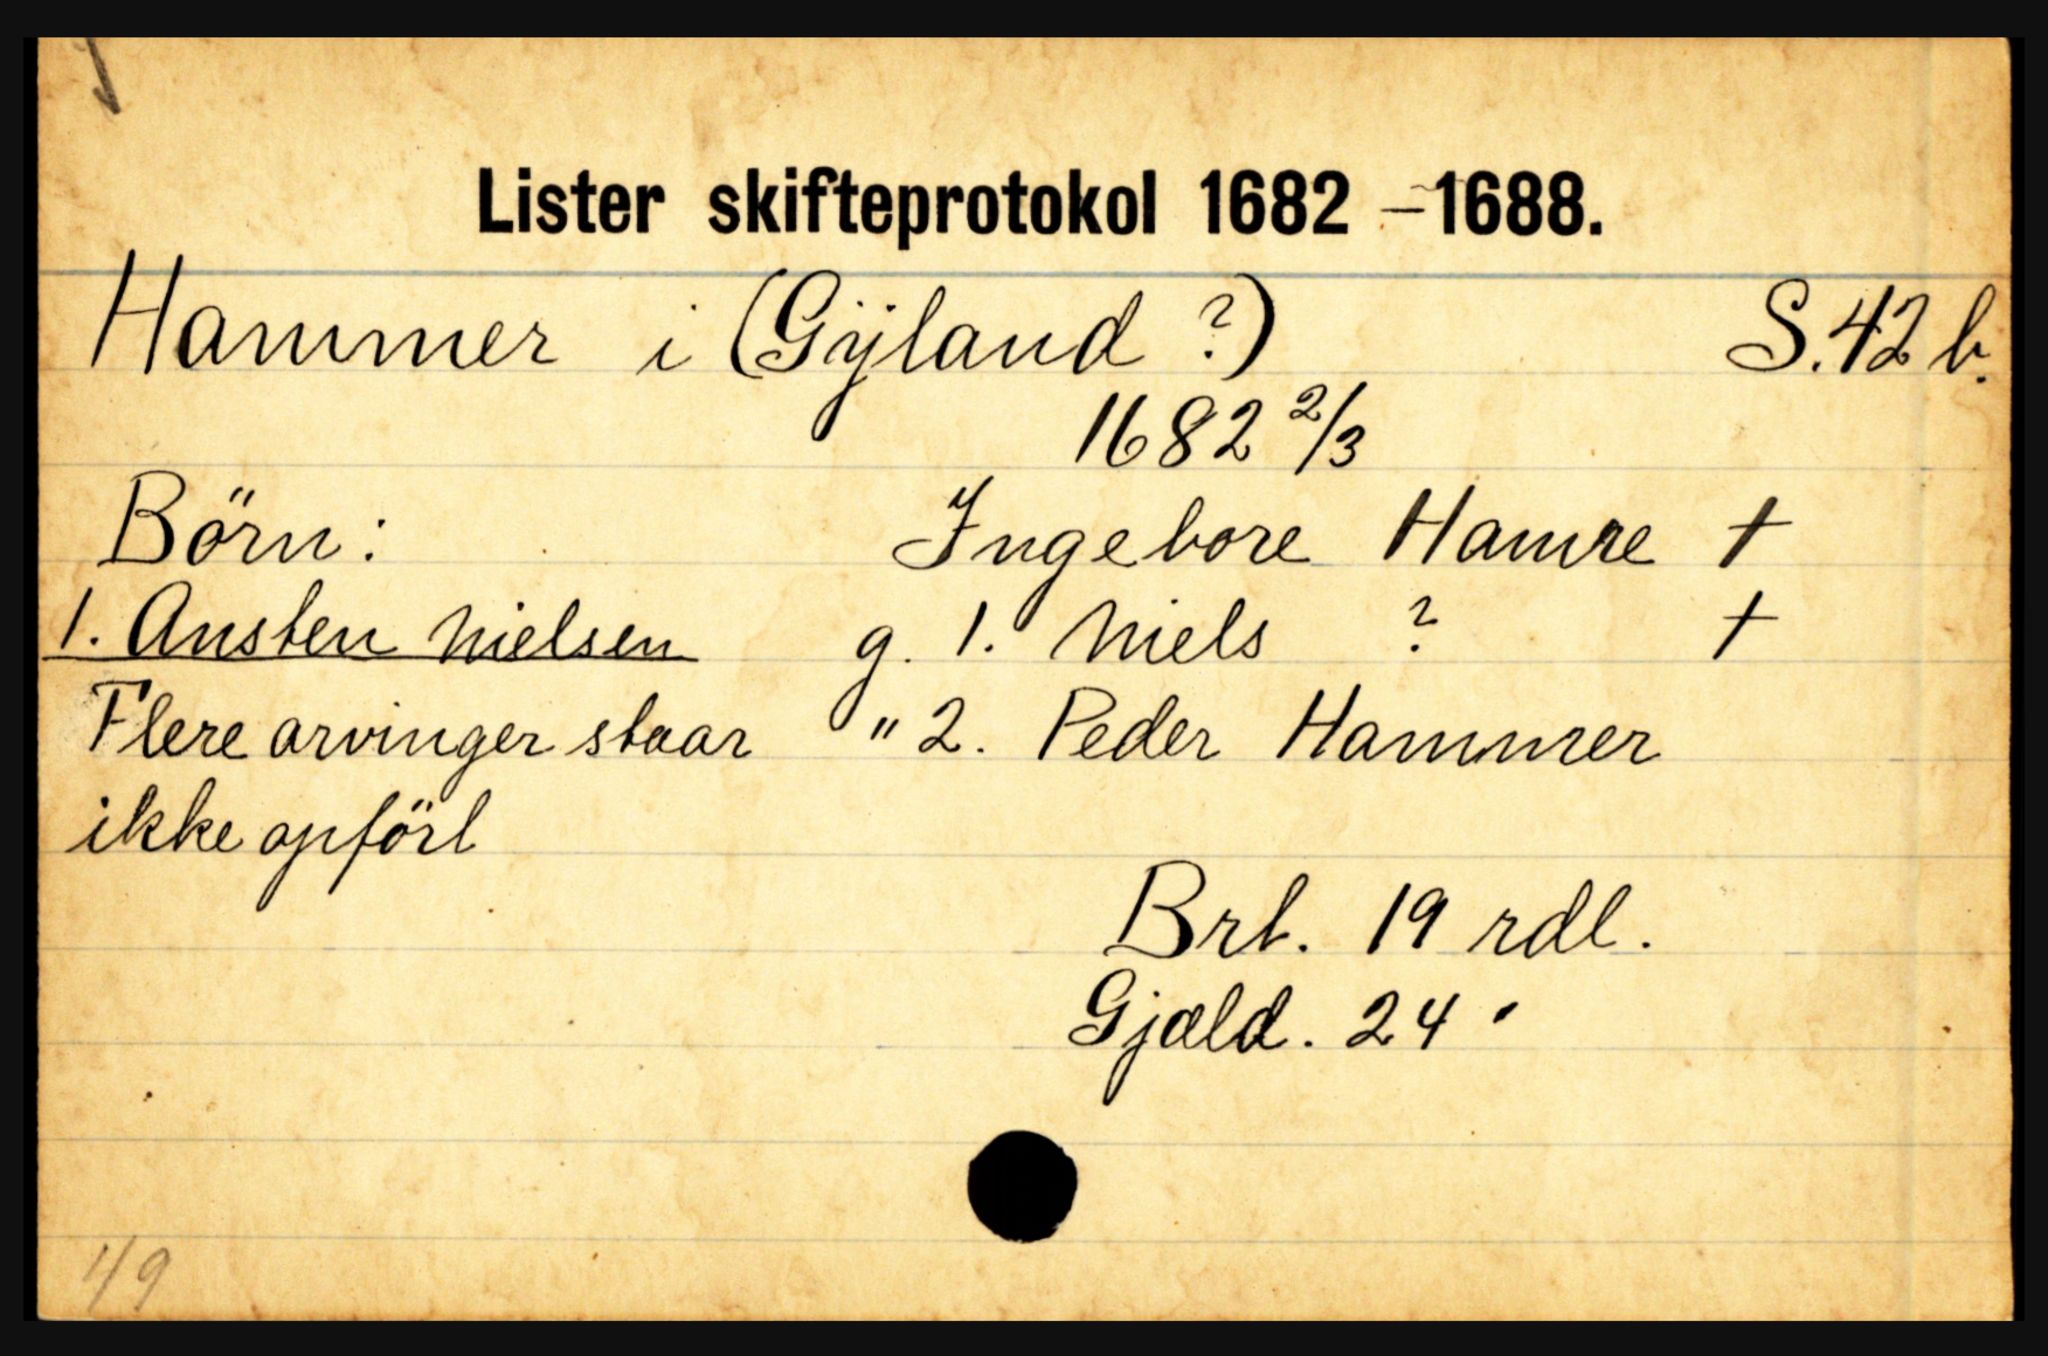 Lister skifteprotokol 1682 – 1688.
Hammer i (Gÿland ?) S. 42 b.
1682 2/3
Börn: Ingebore Hamre †
1. Austen Nielsen g. 1. Niels ? †
Flere arvinger staar " 2. Peder Hammer
ikke opfört
Brt. 19 rdl.
Gjæld. 24 "
49